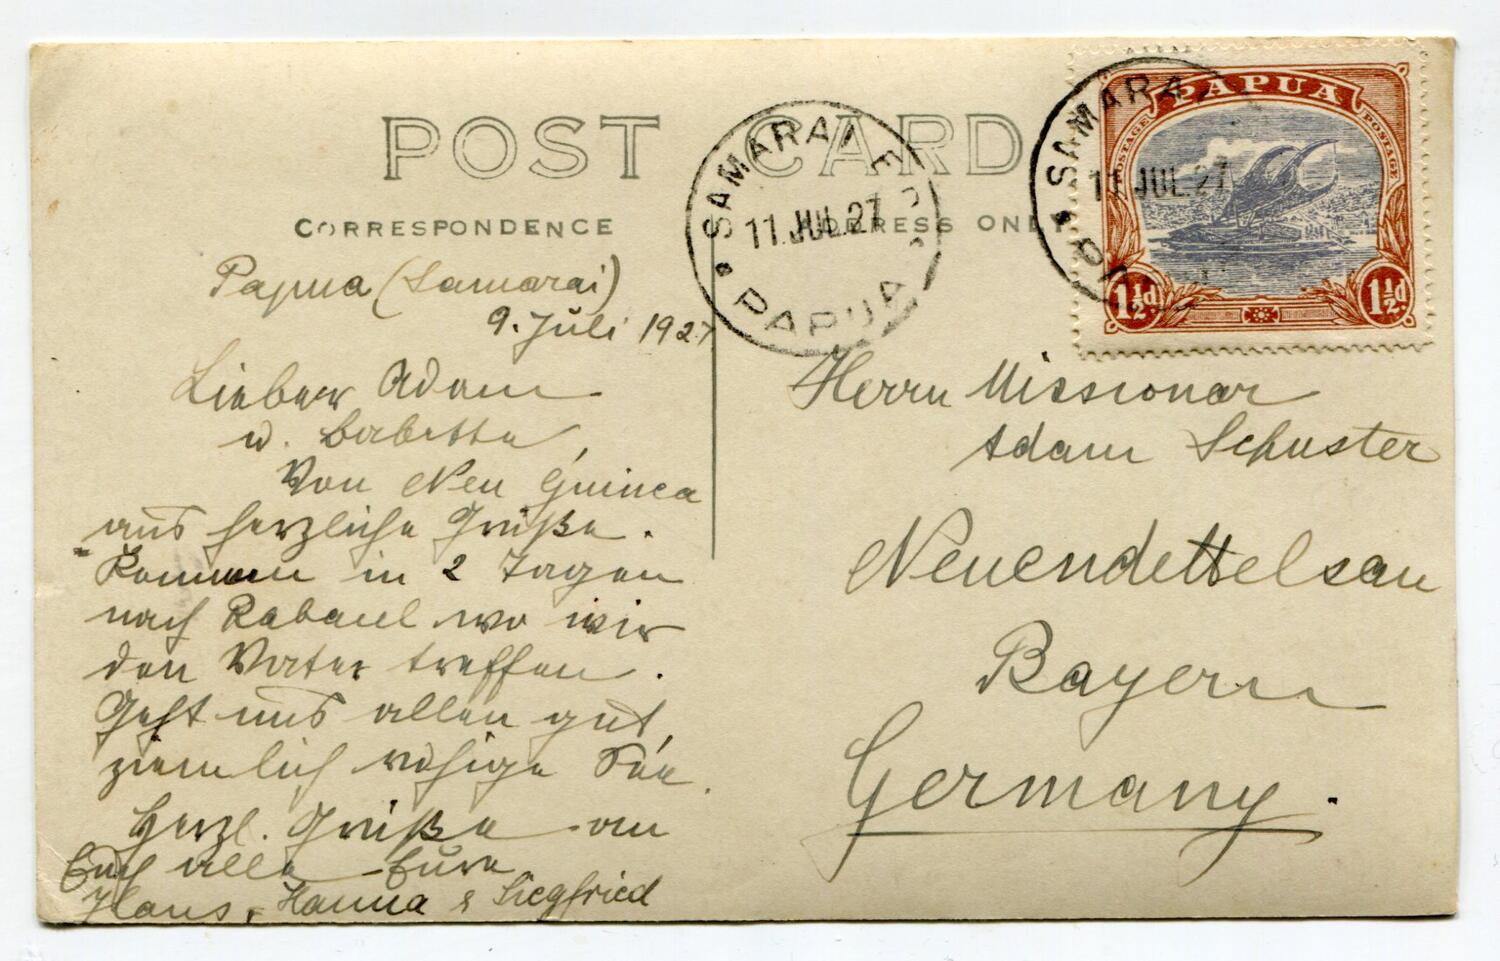 POST CARD
CORRESPONDENCE
ADDRESS ONLY
SAMARAI
11 JUL 27
PAPUA
SAMARAI
11 JUL 27
PAPUA
POSTAGE
POSTAGE
1½d.
1½d.
Papua (Samarai)
9. Juli 1927
Lieber Adam
u. Babette,
Von Neu Guinea
aus herzliche Grüße.
Kommen in 2 Tagen
nach Rabaul wo wir
den Vater treffen.
Geht uns allen gut,
ziemlich ruhige See.
Herzl. Grüße an
Euch alle Eure
Hans, Hanna & Siegfried
Herrn Missionar
Adam Schuster
Neuendettelsau
Bayern
Germany.